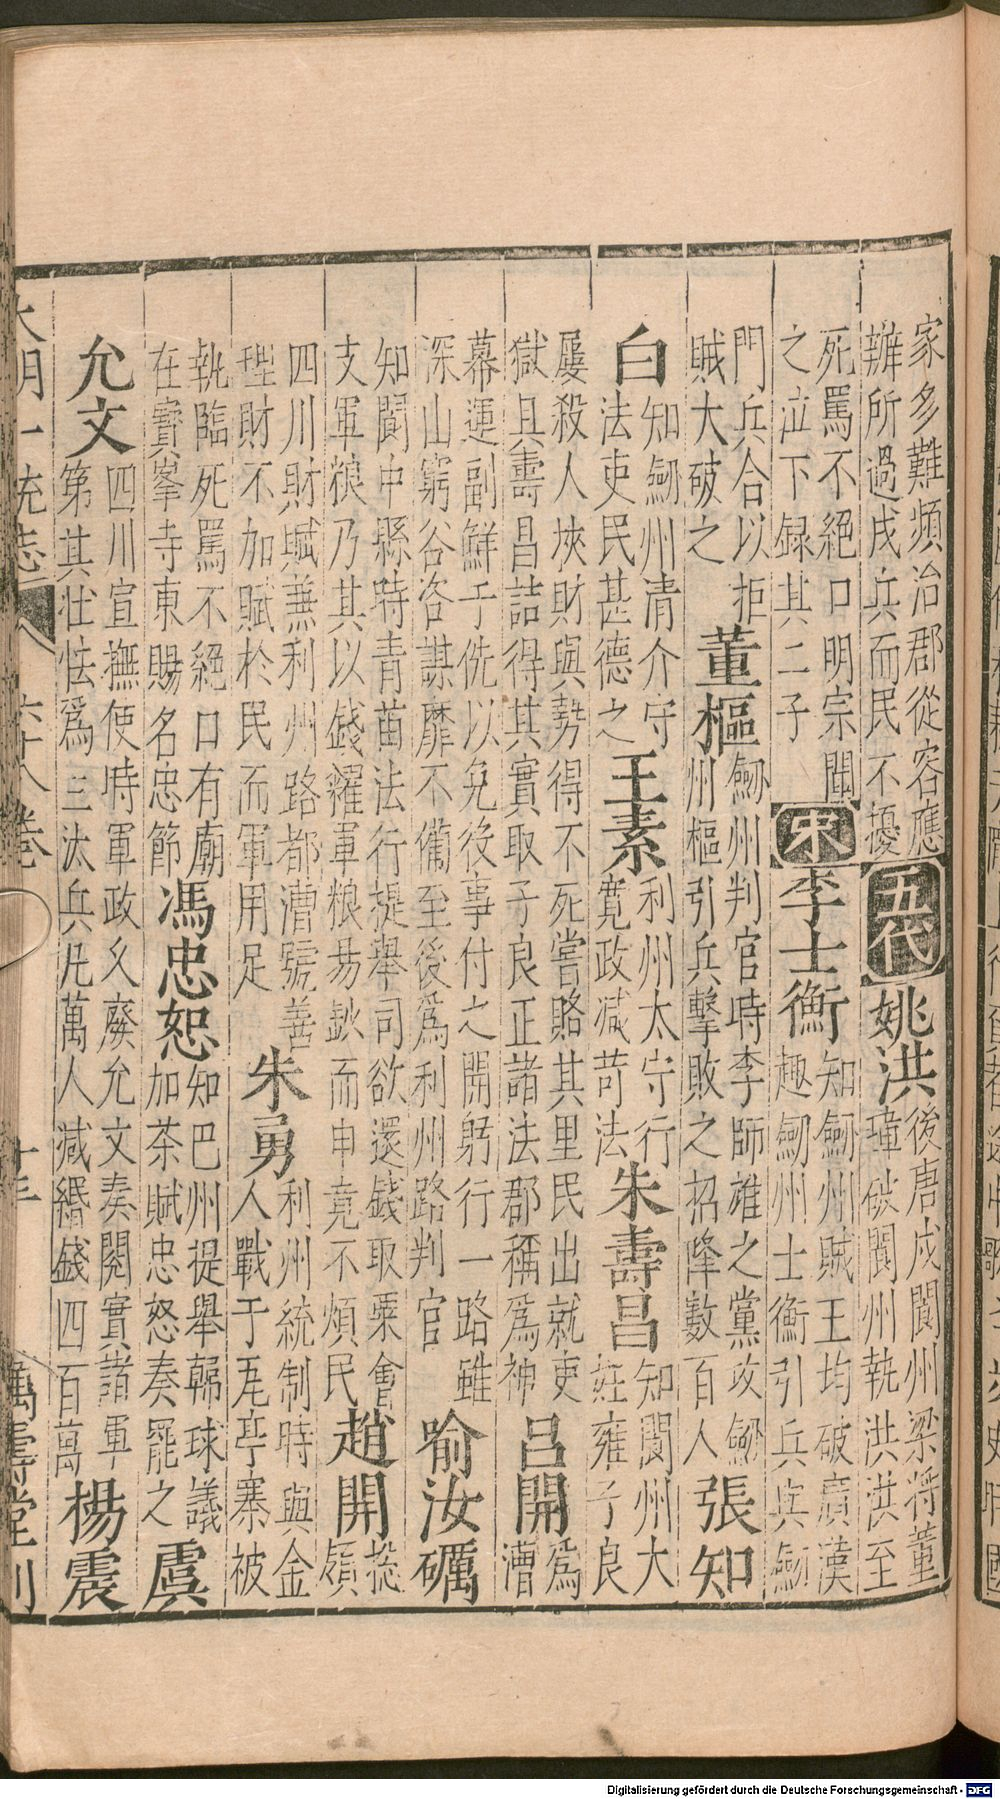 家多難頻治郡從容應
辦所過戍兵而民不擾
五代
姚洪
後唐戍閬州梁將董
璋破閬州執洪洪至
死罵不絕口明宗聞
之泣下録其二子
宋
李士衡
知劒州賊王均破廣漢
趣劒州士衡引兵與劒
門兵合以拒
賊大破之
董樞
劒州判官時李師雄之黨攻劒
州樞引兵擊敗之招降數百人
張知
白
知劒州清介守
法吏民甚德之
王素
利州太守行
寬政減苛法
朱壽昌
知閬州大
姓雍子良
屢殺人挾財與勢得不死嘗賂其里民出就吏
獄具壽昌詰得其實取子良正諸法郡稱爲神
呂開
爲
漕
幕運副鮮于侁以免役事付之開躬行一路雖
深山窮谷咨謀靡不備至後爲利州路判官
喻汝礪
知閬中縣時青苗法行提舉司欲還錢取粟會
支軍粮乃其以錢糴軍粮昜而申竟不煩民
趙開
捴
領
四川財賦兼利州路都漕號善
理財不加賦於民而軍用足
朱勇
利州統制時與金
人戰于尾亭寨被
執臨死罵不絕口有廟
在寳峯寺東賜名忠節
馮忠恕
知巴州提舉韓球議
加茶賦忠恕奏罷之
虞
允文
四川宣撫使時軍政久廢允文奏閱實諸軍
第其壯怯爲三汰兵凡萬人減緡錢四百萬
楊震
大明一統志 六十八卷 萬壽堂刊
Digitalisierung gefördert durch die Deutsche Forschungsgemeinschaft - DFG